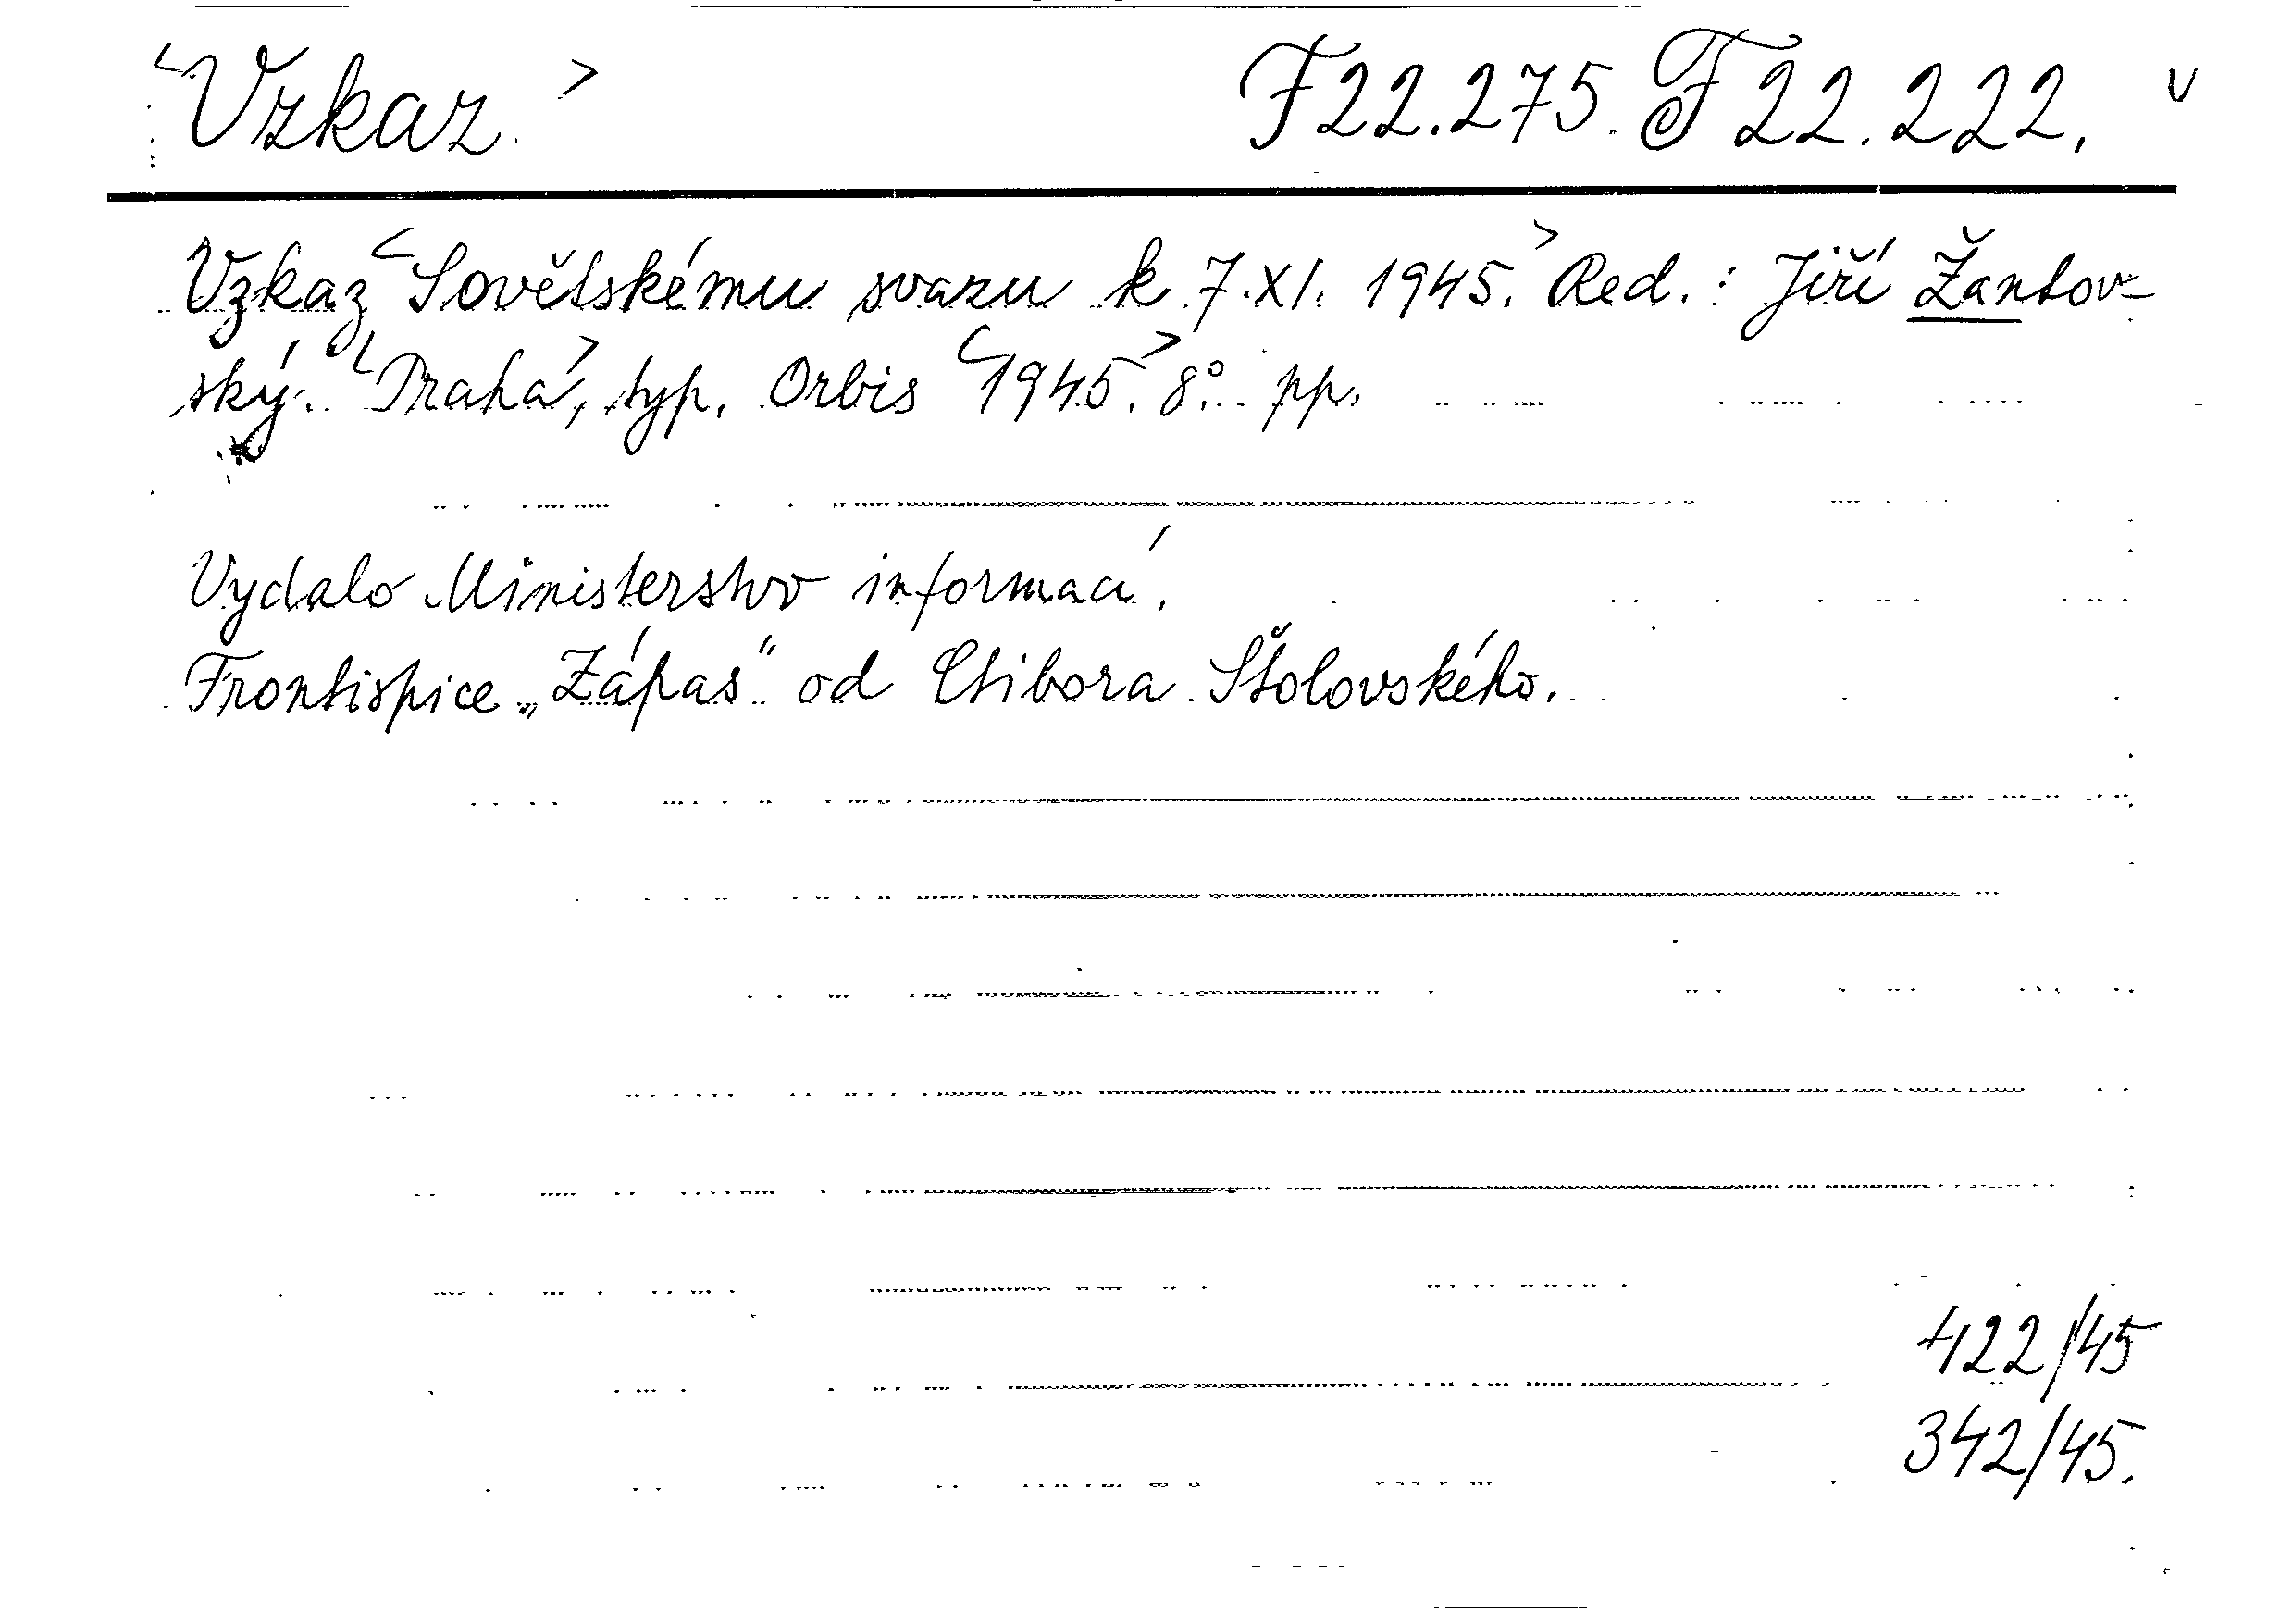 <Vzkaz.> F 22.275. F 22.222. v
Vzkaz <Sovětskému svazu k 7.XI. 1945.> Red.: Jiří Žantov-
ský. <Praha>, typ. Orbis <1945.> 8°. pp.
Vydalo Ministerstvo informací.
Frontispice „Zápas“ od Ctibora Šťolovského.
422/45
342/45.